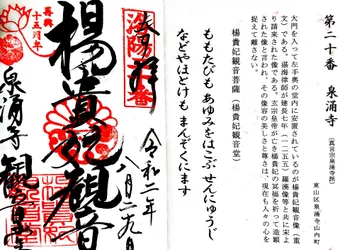 第二十番 泉涌寺
(真言宗泉涌寺派)
東山区泉涌寺山内町
大門を入って左手奥の堂内に安置されているのが楊貴妃観音像(重
文)である。湛海律師が建長七年(一二五五)羅漢像等と共に宋よ
り請来された像で、玄宗皇帝が亡き楊貴妃の冥福を祈って造顕
された像と言われ、その像容の美しさと尊さは、現在も人々の心を
捉えて離さない。
楊貴妃観音菩薩 (楊貴妃観音堂)
ももたびも あゆみをはこぶ せんにゅうじ
などやほとけも まんぞくにます
再興
十五周年
奉拝
洛陽二十番
令和二年
八月二九日
楊貴妃観音
泉涌寺